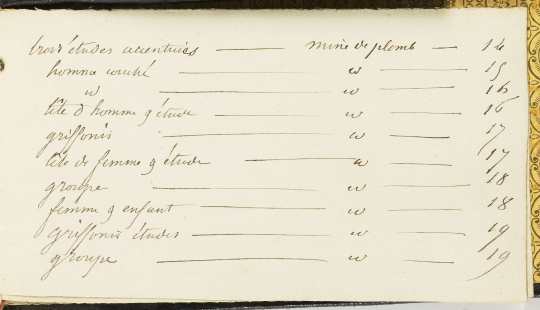 trois études accentuées — mine de plomb — 14
homme couché — id — 15
id — id — 16
tête d homme & étude — id — 16
griffonis — id — 17
tête de femme & étude — id — 17
groupe — id — 18
femme & enfant — id — 18
griffonis études — id — 19
groupe — id — 19